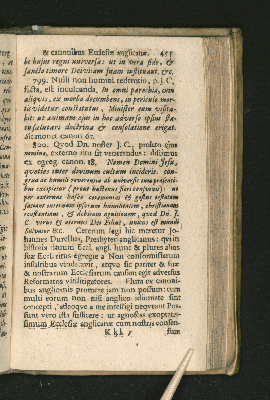 & canonibus Ecclesiæ anglicanæ. 455
be hujus regni universa: ut in vera fide, &
sancto timore Dei vitam suam instituant, &c.
799. Nulli non homini restitutio, p. J. C.
facta, est inculcanda, In omni parochia, cum
aliquis, ex morbo decumbens, in periculo mor-
tis videtur constitutus, Minister eum visita-
bit: ut animam ejus in hoc adverso ipsius sta-
tu salutari doctrina & consolatione erigat.
ait memorat. canon 67.
800. Quod Dn. noster J. C. prolato ejus
nomine, externo ritu sit venerandus: discimus
ex egreg. canon. 18. Nomen Domini Jesu,
quoties inter divinum cultum incideris, con-
grua & humili reverentia ab universis præsenti-
bus excipietur (prout hactenus fieri consuevit) ut
per externas hasce ceremonias & gestus testatam
faciant internam ipsorum humilitatem, christianam
constantiam, & debitam agnitionem, quod Dn. J.
C. verus & æternus Dei Filius, unicus est mundi
Salvator &c. Ceterum hæc hic meretur Jo-
hannes Durellus, Presbyter anglicanus: qui in
historia rituum Eccl. angl. hunc & plures alios
suæ Eccl. ritus egregie a Non conformistarum
insultibus vindicavit, atque sic pariter & suæ
& nostrarum Ecclesiarum causam egit adversus
Reformatos vitilitigatores. Plura ex canoni-
bus anglicanis promere jam non possum: cum
multi eorum non nisi anglico idiomate sint
concepti, adeoque a me intelligi nequeant. Pos-
sunt vero ista sufficere: ut agnoscas exoptatis-
simum Ecclesiæ anglicanæ cum nostris consen-
sum